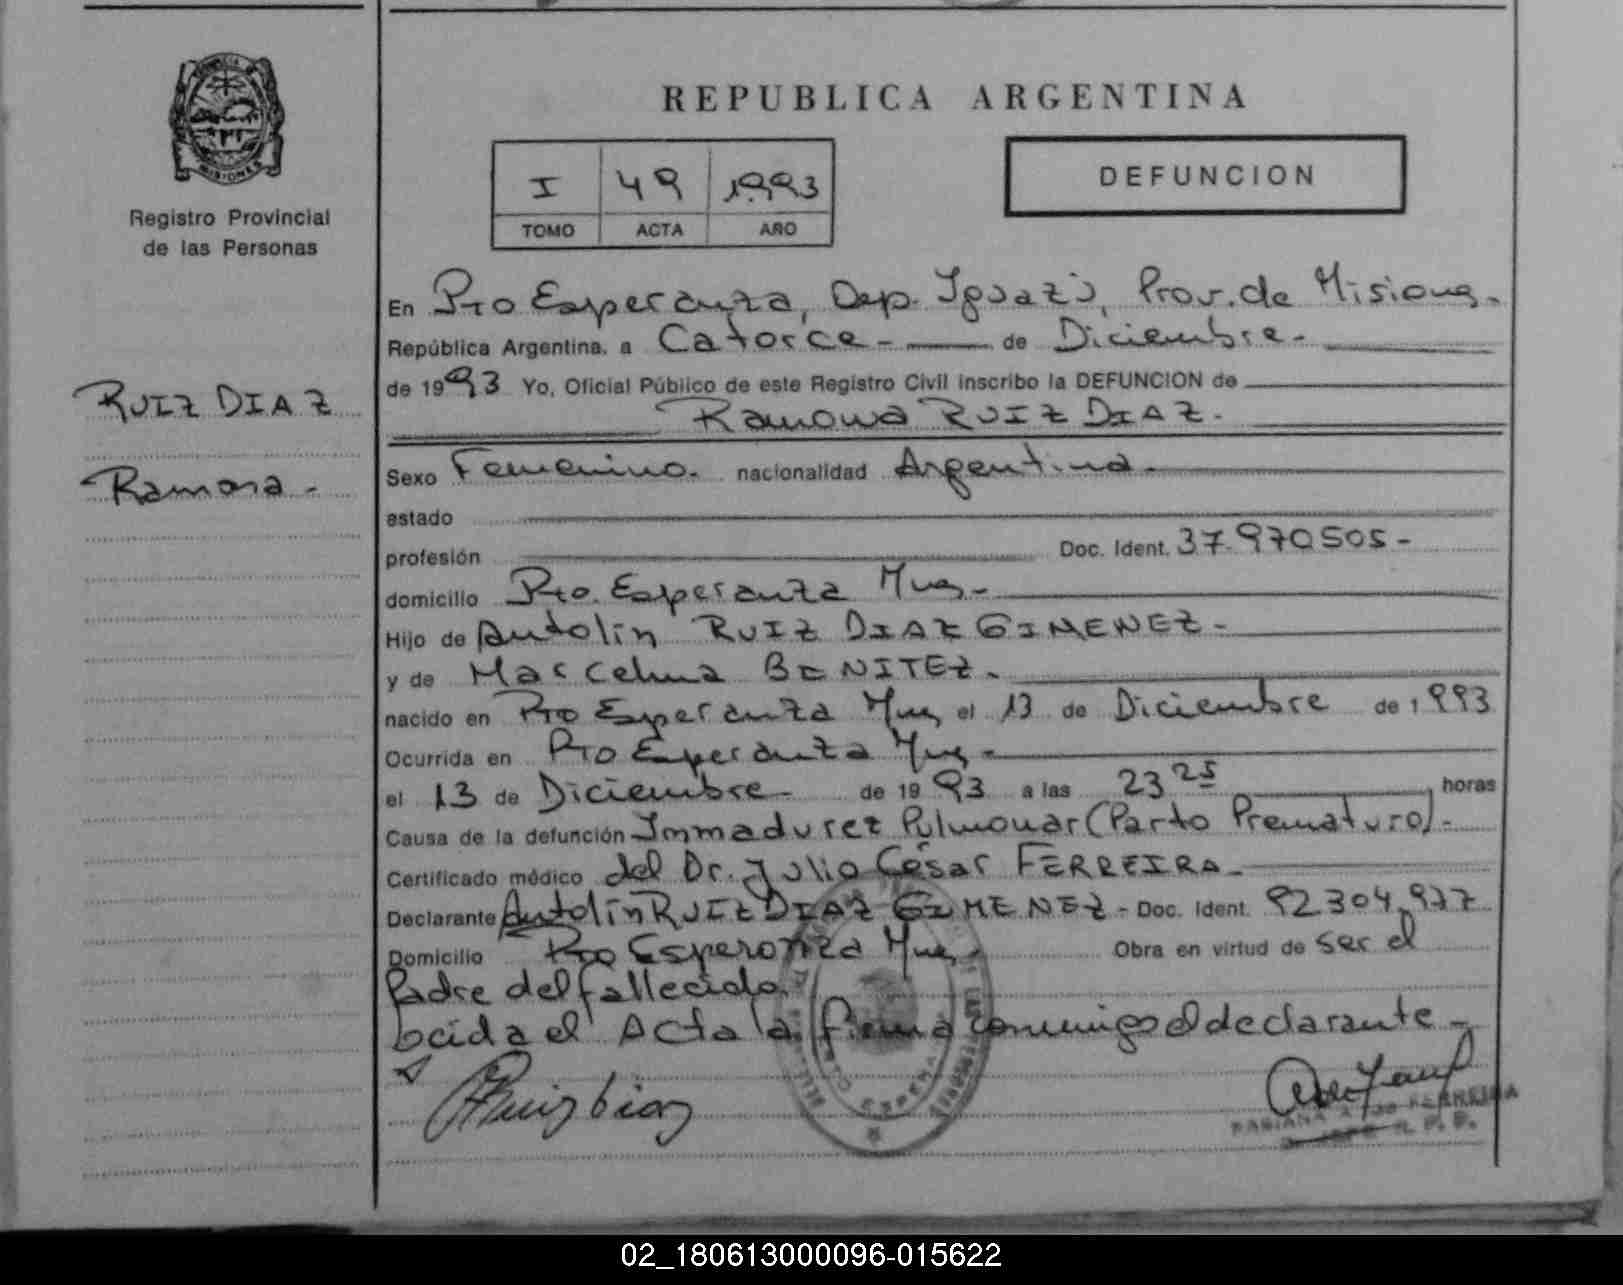 PROVINCIA DE
MISIONES
Registro Provincial
de las Personas
RUIZ DIAZ
Ramona -
REPUBLICA ARGENTINA
I 49 1993
TOMO ACTA AÑO
DEFUNCION
En Pto Esperanza, Dep. Iguazú, Prov. de Misiones.
República Argentina, a Catorce - de Diciembre -
de 1993 Yo, Oficial Público de este Registro Civil inscribo la DEFUNCION de
Ramona RUIZ DIAZ.
Sexo Femenino. nacionalidad Argentina -
estado
profesión Doc. Ident. 37.970505 -
domicilio Pto. Esperanza Mnes -
Hijo de Antolín RUIZ DIAZ GIMENEZ -
y de Marcelina BENITEZ -
nacido en Pto Esperanza Mnes el 13 de Diciembre de 1993
Ocurrida en Pto Esperanza Mnes -
el 13 de Diciembre - de 1993 a las 23 25 horas
Causa de la defunción Inmadurez Pulmonar (Parto Prematuro) -
Certificado médico del Dr. Julio César FERREIRA -
Declarante Antolín RUIZ DIAZ GIMENEZ - Doc. Ident. 92304.977
Domicilio Pto Esperanza Mnes - Obra en virtud de ser el
Padre del fallecido.
Leída el Acta la firma conmigo el declarante -
Ruiz Diaz
FERREIRA
02_180613000096-015622